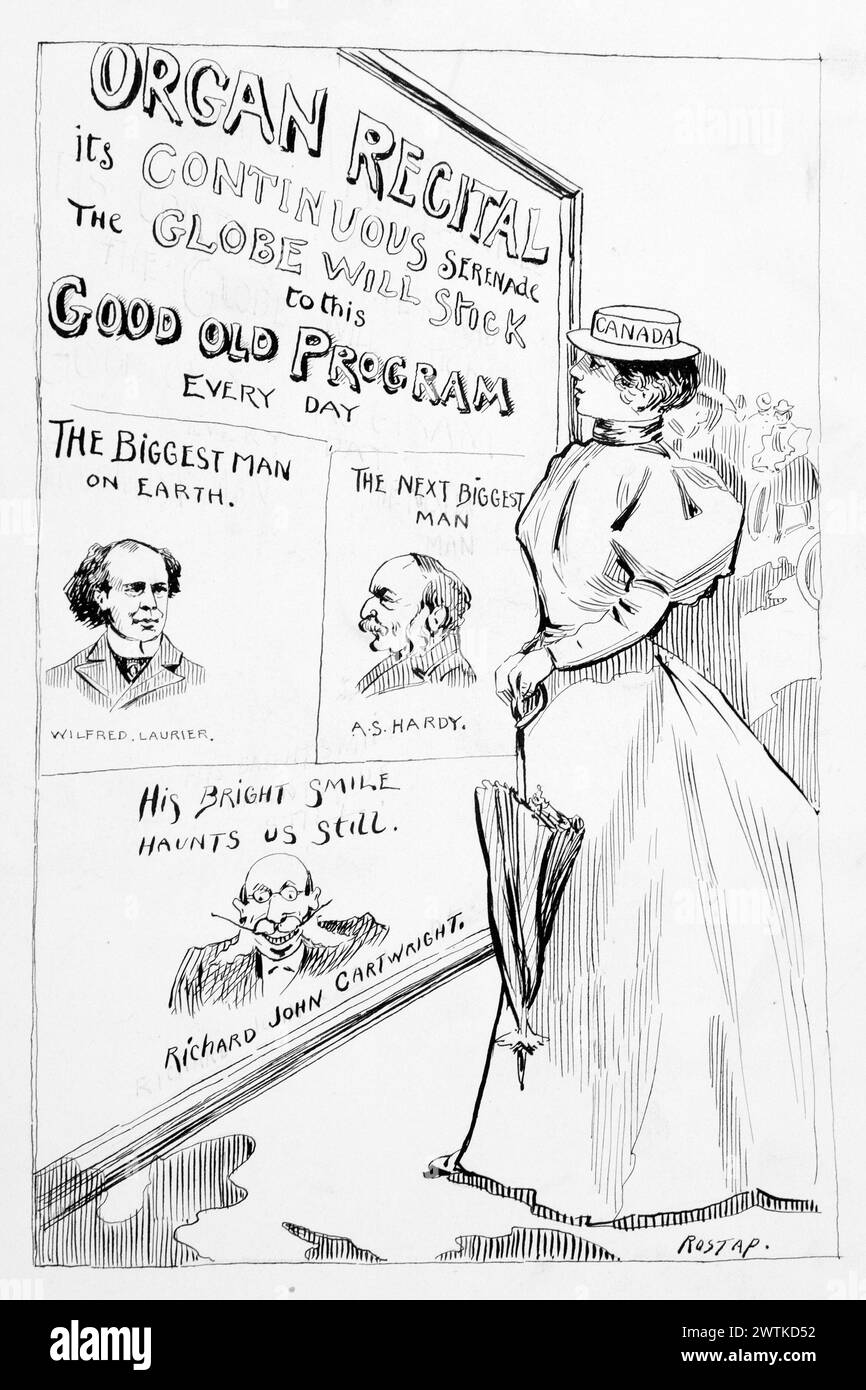 ORGAN RECITAL
its CONTINUOUS SERENADE
THE GLOBE WILL STICK
to this
GOOD OLD PROGRAM
EVERY DAY
THE BIGGEST MAN
ON EARTH.
WILFRED. LAURIER.
THE NEXT BIGGEST
MAN
A.S. HARDY.
His BRIGHT SMILE
HAUNTS US Still.
RICHARD JOHN CARTWRIGHT.
CANADA
ROSTAP.
alamy
Image ID: 2WTKD52
www.alamy.com